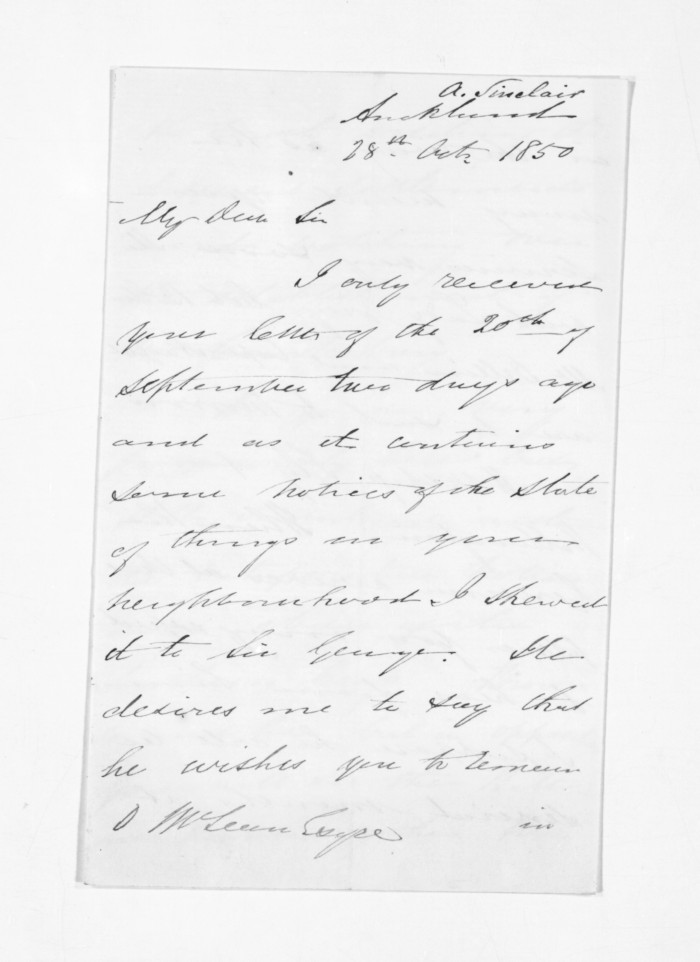 A. Sinclair
Auckland
28th Octr 1850
My Dear Sir
I only received
your letter of the 20th of
September two days ago
and as it contains
some notices of the state
of things in your
neighbourhood I shewed
it to Sir George. He
desires me to say that
he wishes you to remain
D McLean Esqre in